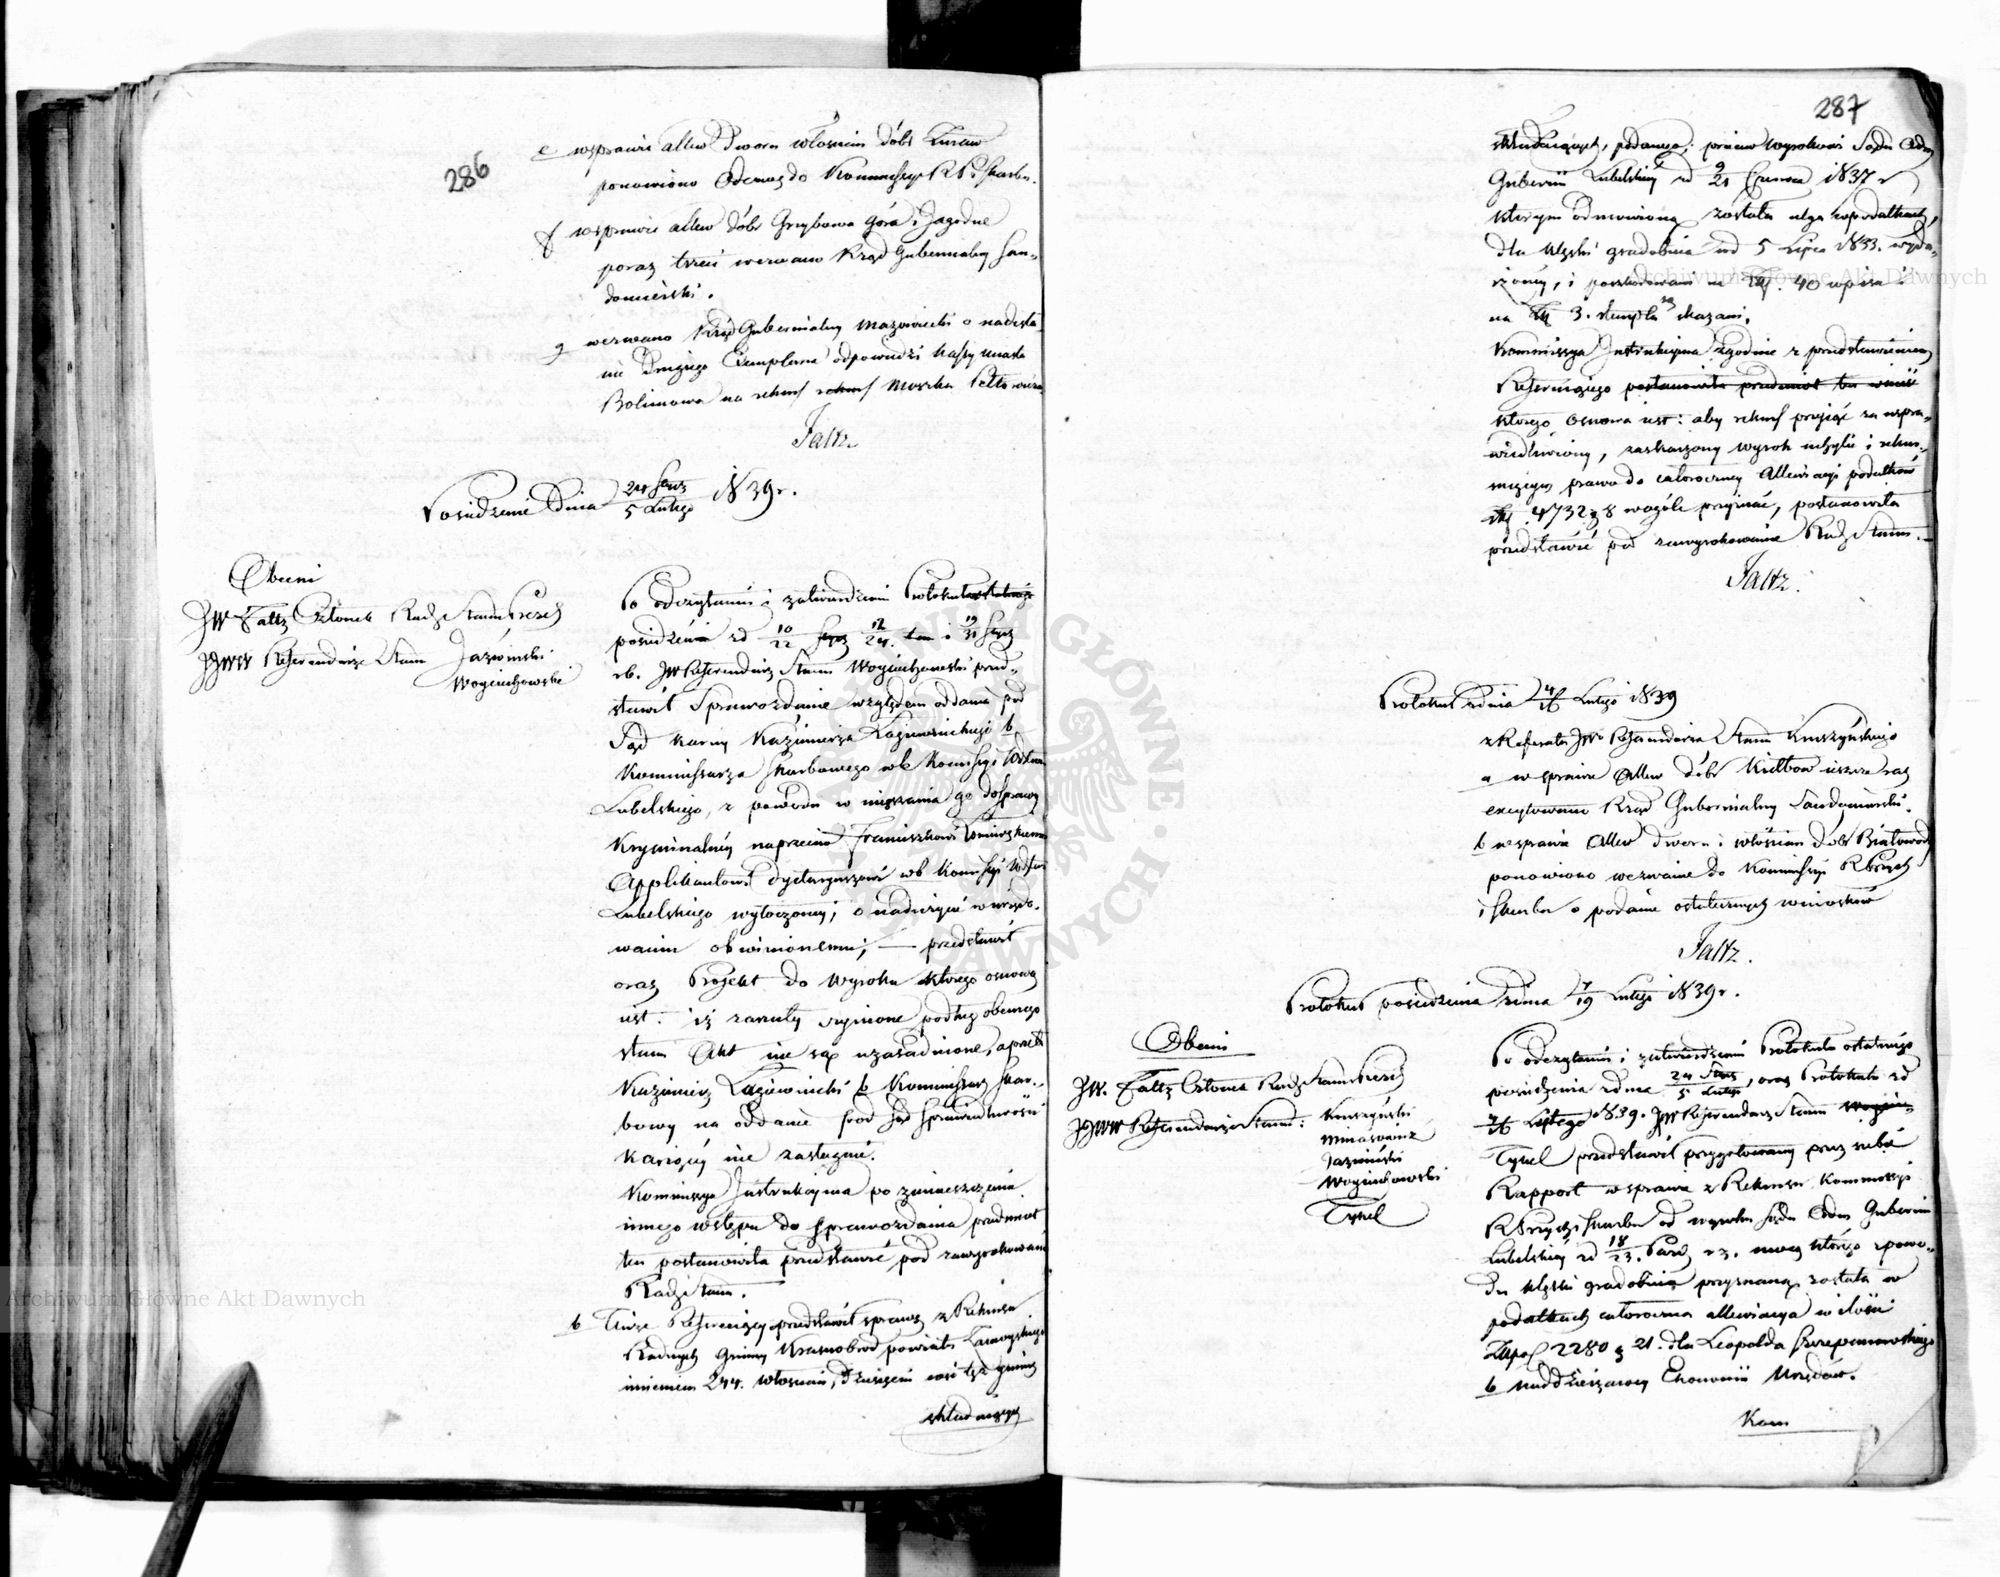 286
e w sprawie allew Dworu włościan dóbr
ponowiono Odezwę do Kommissyi R. P. Skarbu.
f w sprawie allew dóbr Grzybowa Góra i Jagodne
poraz trzeci wezwano Rząd Gubernialny San-
domierski.
g wezwano Rząd Gubernialny Mazowiecki o nadesła-
nie Drugiego Exemplarza odpowiedzi Kassy miasta
Bolimowa na rekurs Moszka
Faltz
Posiedzenie Dnia 24 Stycz/5 Lutego 1839 r.
Obecni
JW Faltz Członek Rady Stanu Prezes
JJWW Referendarze Stanu Jaźwiński
Woyciechowski
Po odczytaniu i zatwierdzeniu Protokułu
posiedzenia zd 10/22 12/24 i 19/31 Stycz
rb. JW Referendarz Stanu Woyciechowski przed-
stawił Sprawozdanie względem oddania pod
Sąd karny Kazimierza Łazownickiego b.
Kommissarza Skarbowego w b. Kommissyi Wdztwa
Lubelskiego, z powodu wmięszania go do sprawy
kryminalnéy naprzeciw Franciszkowi
Applikantowi dyetaryuszowi w b. Kommissyi Wdztwa
Lubelskiego wytoczonéy, o nadużycie w urzędo-
waniu obwinionemu; — przedstawił
oraz Projekt do Wyroku którego osnową
iest: iż zarzuty czynione podług obecnego
stanu Akt nie są uzasadnione, a przeto
Kazimierz Łazownicki b. Kommissarz Skar-
bowy na oddanie pod Sąd Sprawiedliwości
karzącéy nie zasługuie.
Kommissya Instrukcyina po zamieszczeniu
innego wstępu do sprawozdania przedmiot
ten postanowiła przedstawić pod zawyrokowanie
Rady Stanu.
b. Tenże Referuiący przedstawił sprawę z Rekursu
Radnych Gminy Krasnobród powiatu Zamoyskiego
imieniem 244. włościan, Dziesięciu wsi też gminę
składaiących
287
składaiących, podanego; przeciw wyrokowi Sądu Adm
Gubernii Lubelskiéy zd 9/21 Czerwca 1837 r
którym odmówioną została ulga w podatkach,
dla klęski gradobicia zd 5 Lipca 1833. wyda-
rzonéy, i poszkodowani na Złp. 40 wpisu i
na Złp 3. stempla są skazani.
Kommissya Instrukcyina zgodnie z przedstawieniem
Referuiącego postanowiła przedmiot ten wnieść
którego osnową iest: aby rekurs przyiąć za uspra-
wiedliwiony, zaskarżony wyrok uchylić i reku-
ruiącym prawo do całorocznéy Allewiacyi podatków
Złp. 4732 g 8 wogóle przyznać, postanowiła
przedstawić pod zawyrokowanie Rady Stanu.
Faltz.
Protokuł z dnia 4/16 Lutego 1839
z Referatu JW Referendarza Stanu Kruszyńskiego
a w sprawie Allew dóbr Kiełbow ieszcze raz
excytowano Rząd Gubernialny Sandomierski.
b w sprawie Allew dworu i włościan dóbr
ponowiono wezwanie do Kommissyi R Przych
i Skarbu o podanie ostatecznych wniosków
Faltz.
Protokuł posiedzenia z dnia 7/19 Lutego 1839 r.
Obecni
JW. Faltz Członek Rady Stanu Prezes
JJWW Referendarze Stanu: Kruszyński
Minasowicz
Jaźwiński
Woyciechowski
Tykel
Po odczytaniu i zatwierdzeniu Protokułu ostatniego
posiedzenia z dnia 24 Stycz/5 Lutego, oraz Protokułu zd
4/16 Lutego 1839. JW Referendarz Stanu
Tykel przedstawił przygotowany przez siebie
Rapport w sprawie z Rekursu Kommissyi
R Przych i Skarbu od wyroku Sądu Adm Gubernii
Lubelskiéy zd 18/23. Paźdz r z. mocą którego z powo-
du klęski gradobicia przyznaną została w
podatkach całoroczna allewiacya w ilości
Złpol 2280 g 21. dla Leopolda Szczepanowskiego
b naddzierżawcy Ekonomii Urzędów.
Kom